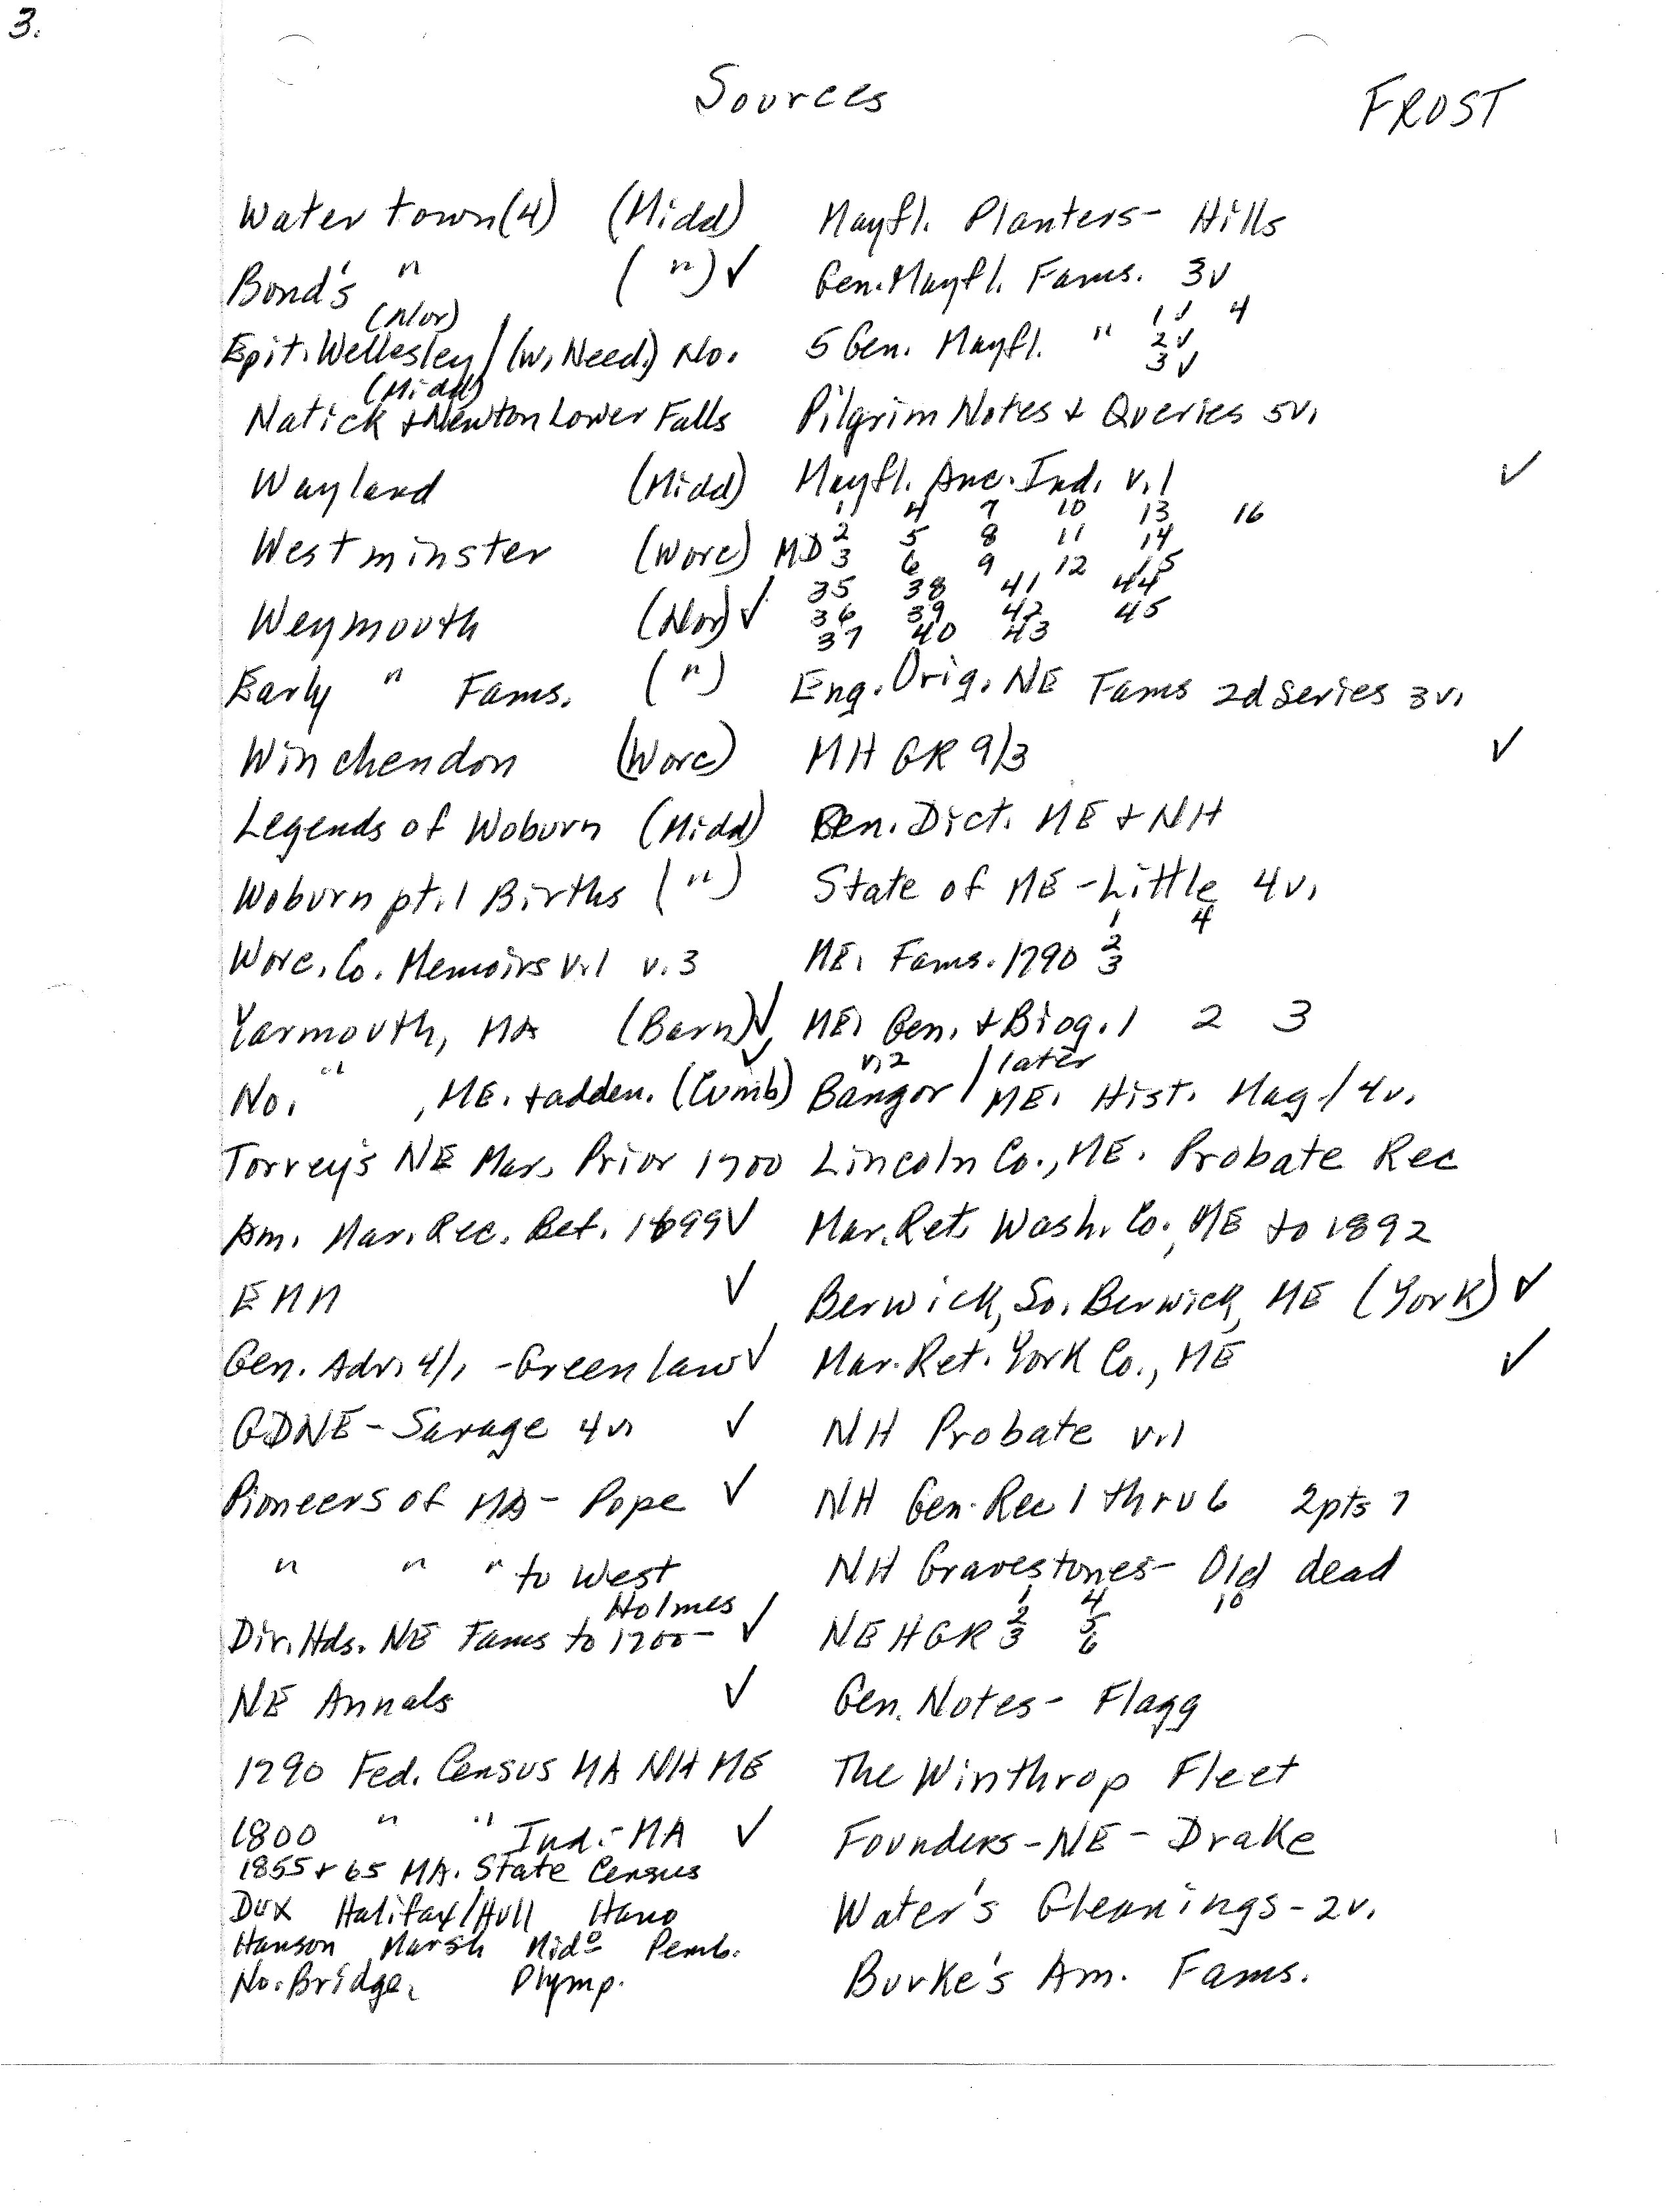 3.
Sources
FROST
Watertown (4) (Midd)
Bond's " (") ✓
(Nor)
Epit. Wellesley / (W. Need.) No.
(Midd)
Natick + Newton Lower Falls
Wayland (Midd)
Westminster (Worc)
Weymouth (Nor) ✓
Early " Fams. (")
Winchendon (Worc)
Legends of Woburn (Midd)
Woburn pt. 1 Births (")
Worc. Co. Memoirs v.1 v.3
Yarmouth, MA (Barn) ✓
No. " , ME. + adden. (Cumb) ✓
Torrey's NE Mar. Prior 1700
Am. Mar. Rec. Bef. 1699 ✓
EMM ✓
Gen. Adv. 4/1 - Greenlaw ✓
GDNE - Savage 4v. ✓
Pioneers of MA - Pope ✓
" " " to West
Holmes
Dir. Hds. NE Fams to 1700 - ✓
NE Annals ✓
1790 Fed. Census MA NH ME
1800 " " Ind. - MA ✓
1855 + 65 MA. State Census
Dux Halifax / Hull Hano
Hanson Marsh Mido Pemb.
No. Bridge. Plymp.
Mayfl. Planters - Hills
Gen. Mayfl. Fams. 3v
1 ✓ 4
5 Gen. Mayfl. " 2 ✓
3 ✓
Pilgrim Notes + Queries 5v.
Mayfl. Anc. Ind. v.1 ✓
1 4 7 10 13 16
MD 2 5 8 11 14
3 6 9 12 15
35 38 41 44
36 39 42 45
37 40 43
Eng. Orig. NE Fams 2d Series 3v.
MHGR 9/3 ✓
Gen. Dict. ME + NH
State of ME - Little 4v.
1 4
ME. Fams. 1790 2
3
ME. Gen. + Biog. 1 2 3
v.2 later
Bangor / ME. Hist. Mag / 4v.
Lincoln Co., ME. Probate Rec
Mar. Ret. Wash. Co., ME to 1892
Berwick, So. Berwick, ME (York) ✓
Mar. Ret. York Co., ME ✓
NH Probate v.1
NH Gen. Rec 1 thru 6 2pts 7
NH Gravestones - Old dead
1 4 10
NEHGR 2 5
3 6
Gen. Notes - Flagg
The Winthrop Fleet
Founders - NE - Drake
Water's Gleanings - 2v.
Burke's Am. Fams.